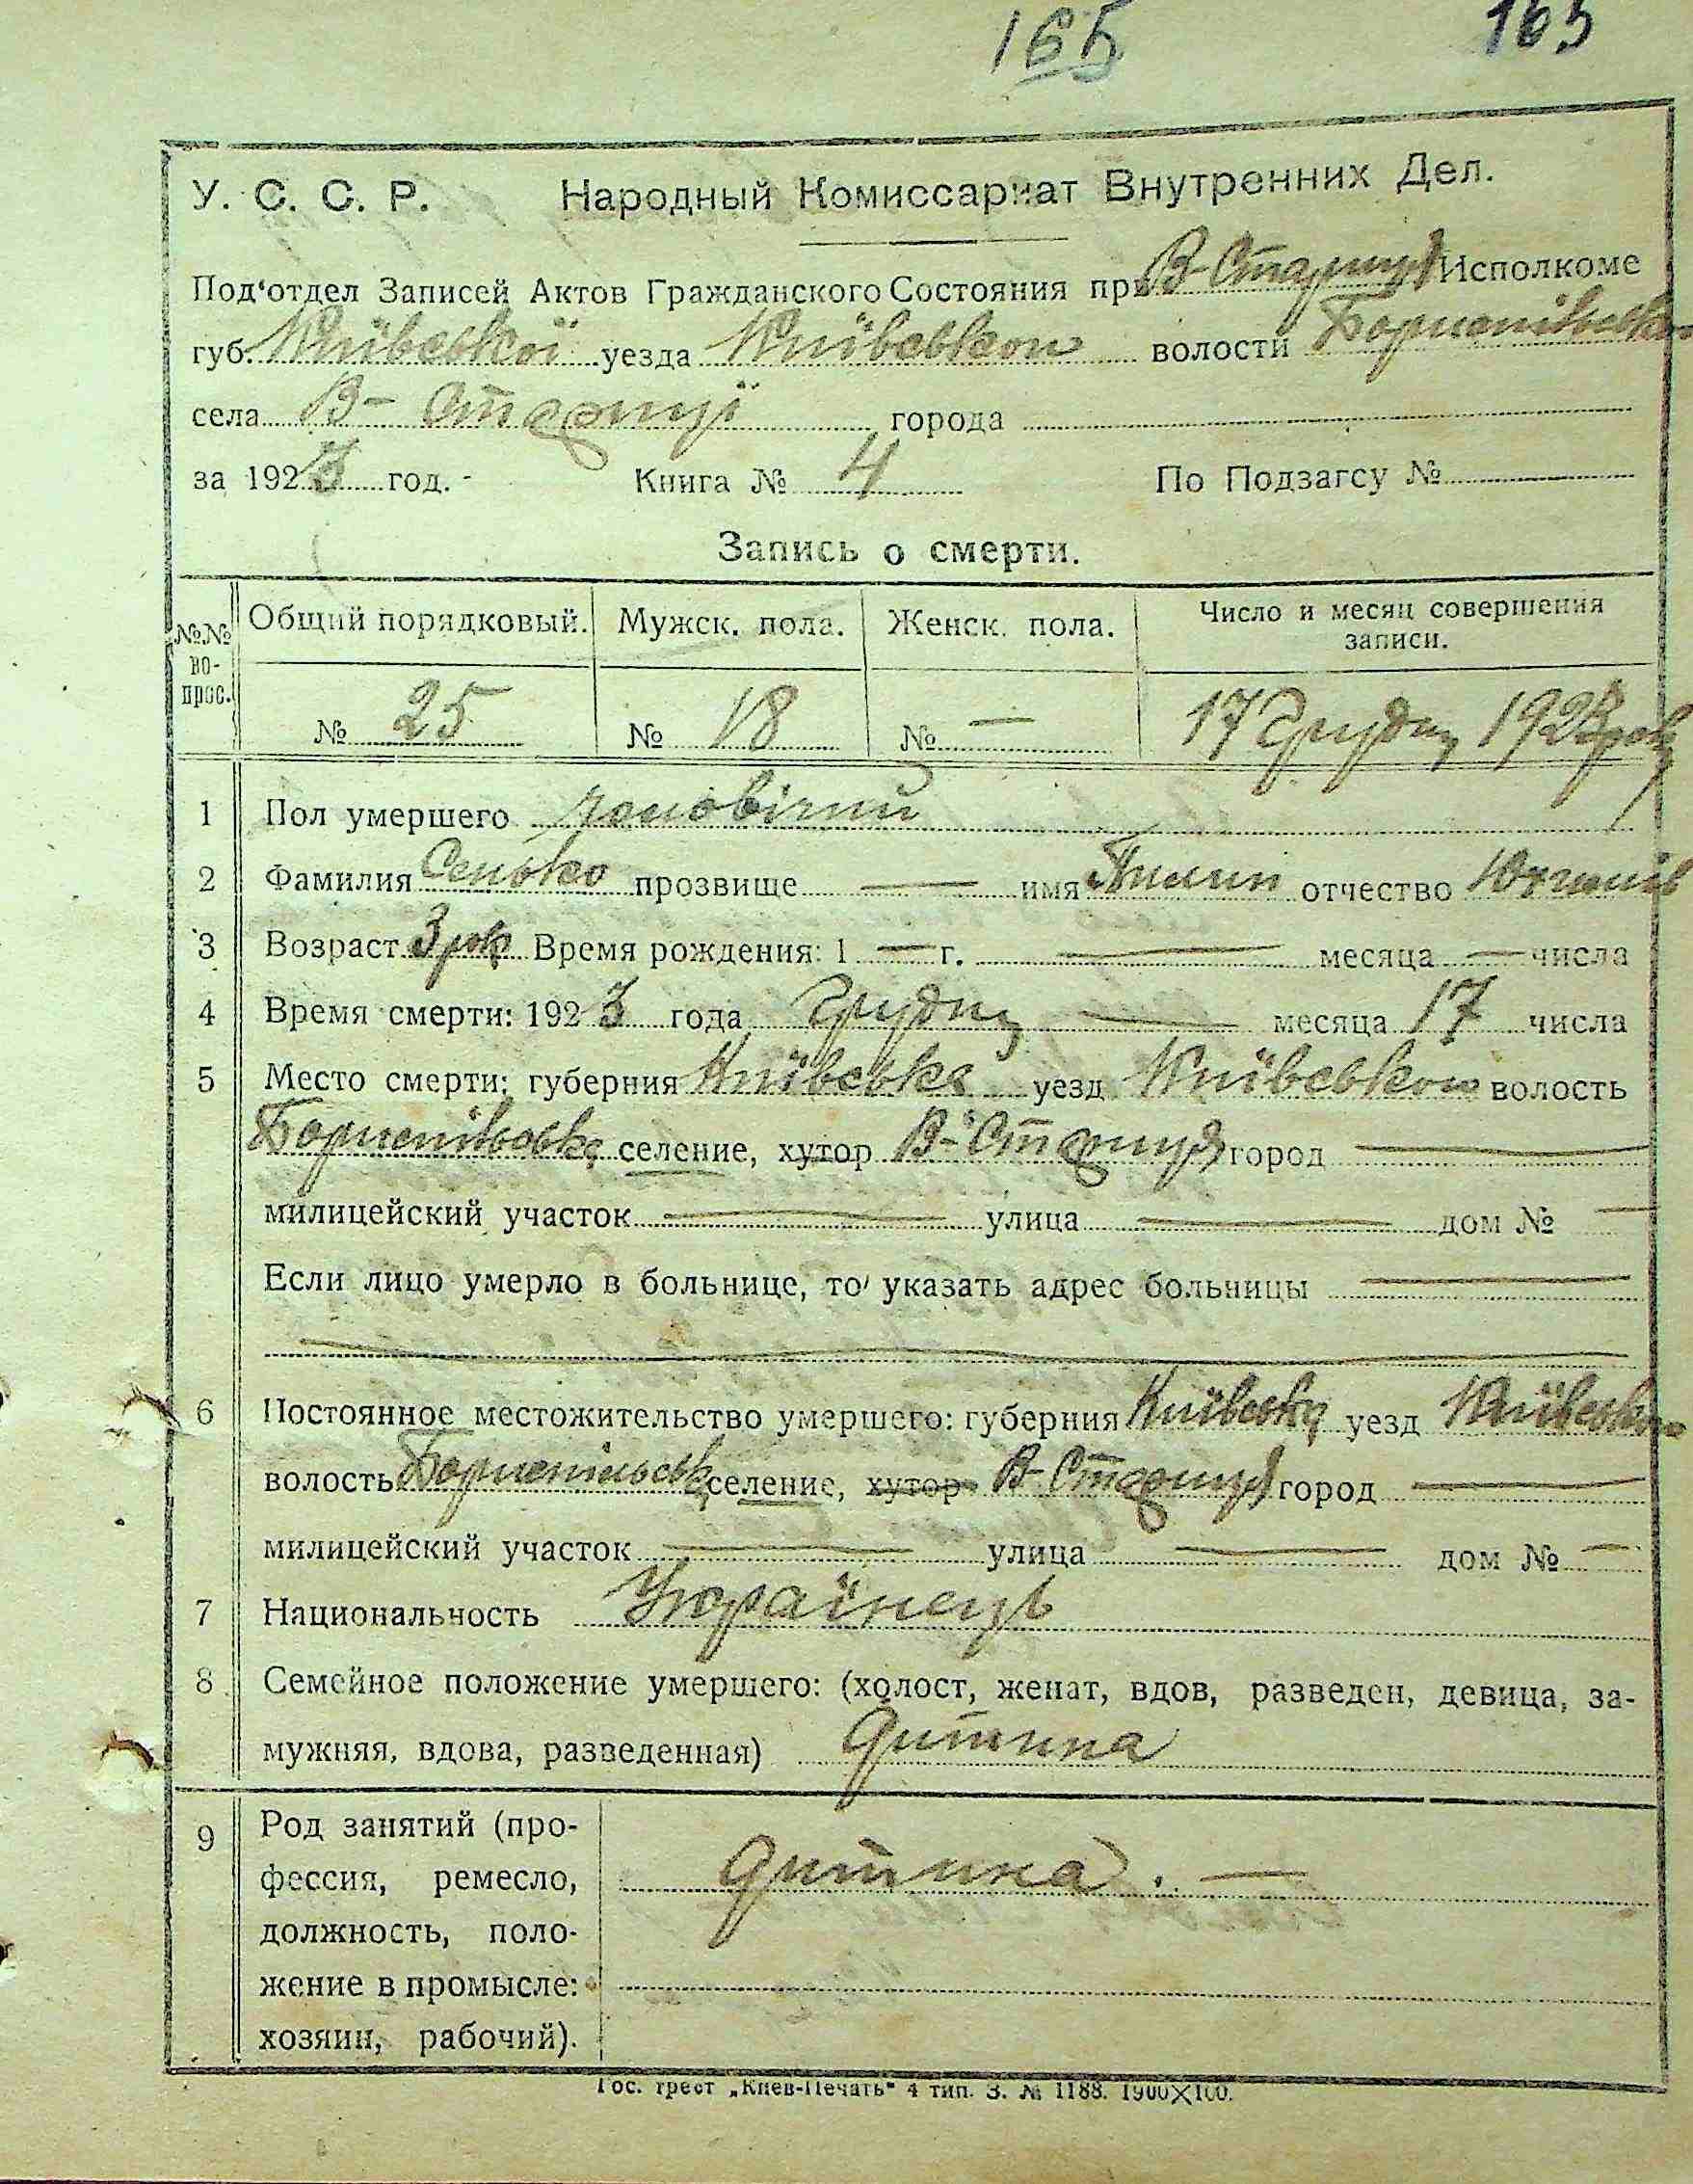 165 165
У. С. С. Р. Народный Комиссариат Внутренних Дел.
Под'отдел Записей Актов Гражданского Состояния при В-Стариці Исполкоме
губ. Київської уезда Київського волости Бориспільської
села В- Стариці города
за 1923 год. Книга № 4 По Подзагсу №
Запись о смерти.
№№ вопрос. Общий порядковый. Мужск. пола. Женск. пола. Число и месяц совершения записи.
№ 25 № 18 № — 17 Грудня 1923 року
1 Пол умершего чоловічий
2 Фамилия Сенько прозвище — имя отчество
3 Возраст 3 рок Время рождения: 1 — г. — месяца — числа
4 Время смерти: 1923 года Грудня — месяца 17 числа
5 Место смерти: губерния Київська уезд Київського волость
Бориспільська селение, хутор В-Стариця город —
милицейский участок — улица — дом № —
Если лицо умерло в больнице, то указать адрес больницы —
—
6 Постоянное местожительство умершего: губерния Київська уезд Київського
волость Бориспільська селение, хутор В-Стариця город —
милицейский участок — улица — дом № —
7 Национальность Українець
8 Семейное положение умершего: (холост, женат, вдов, разведен, девица, за-
мужняя, вдова, разведенная) дитина
9 Род занятий (про-
фессия, ремесло, дитина. —
должность, поло-
жение в промысле:
хозяин, рабочий).
Гос. трест „Киев-Печать" 4 тип. З. № 1188. 1900×100.